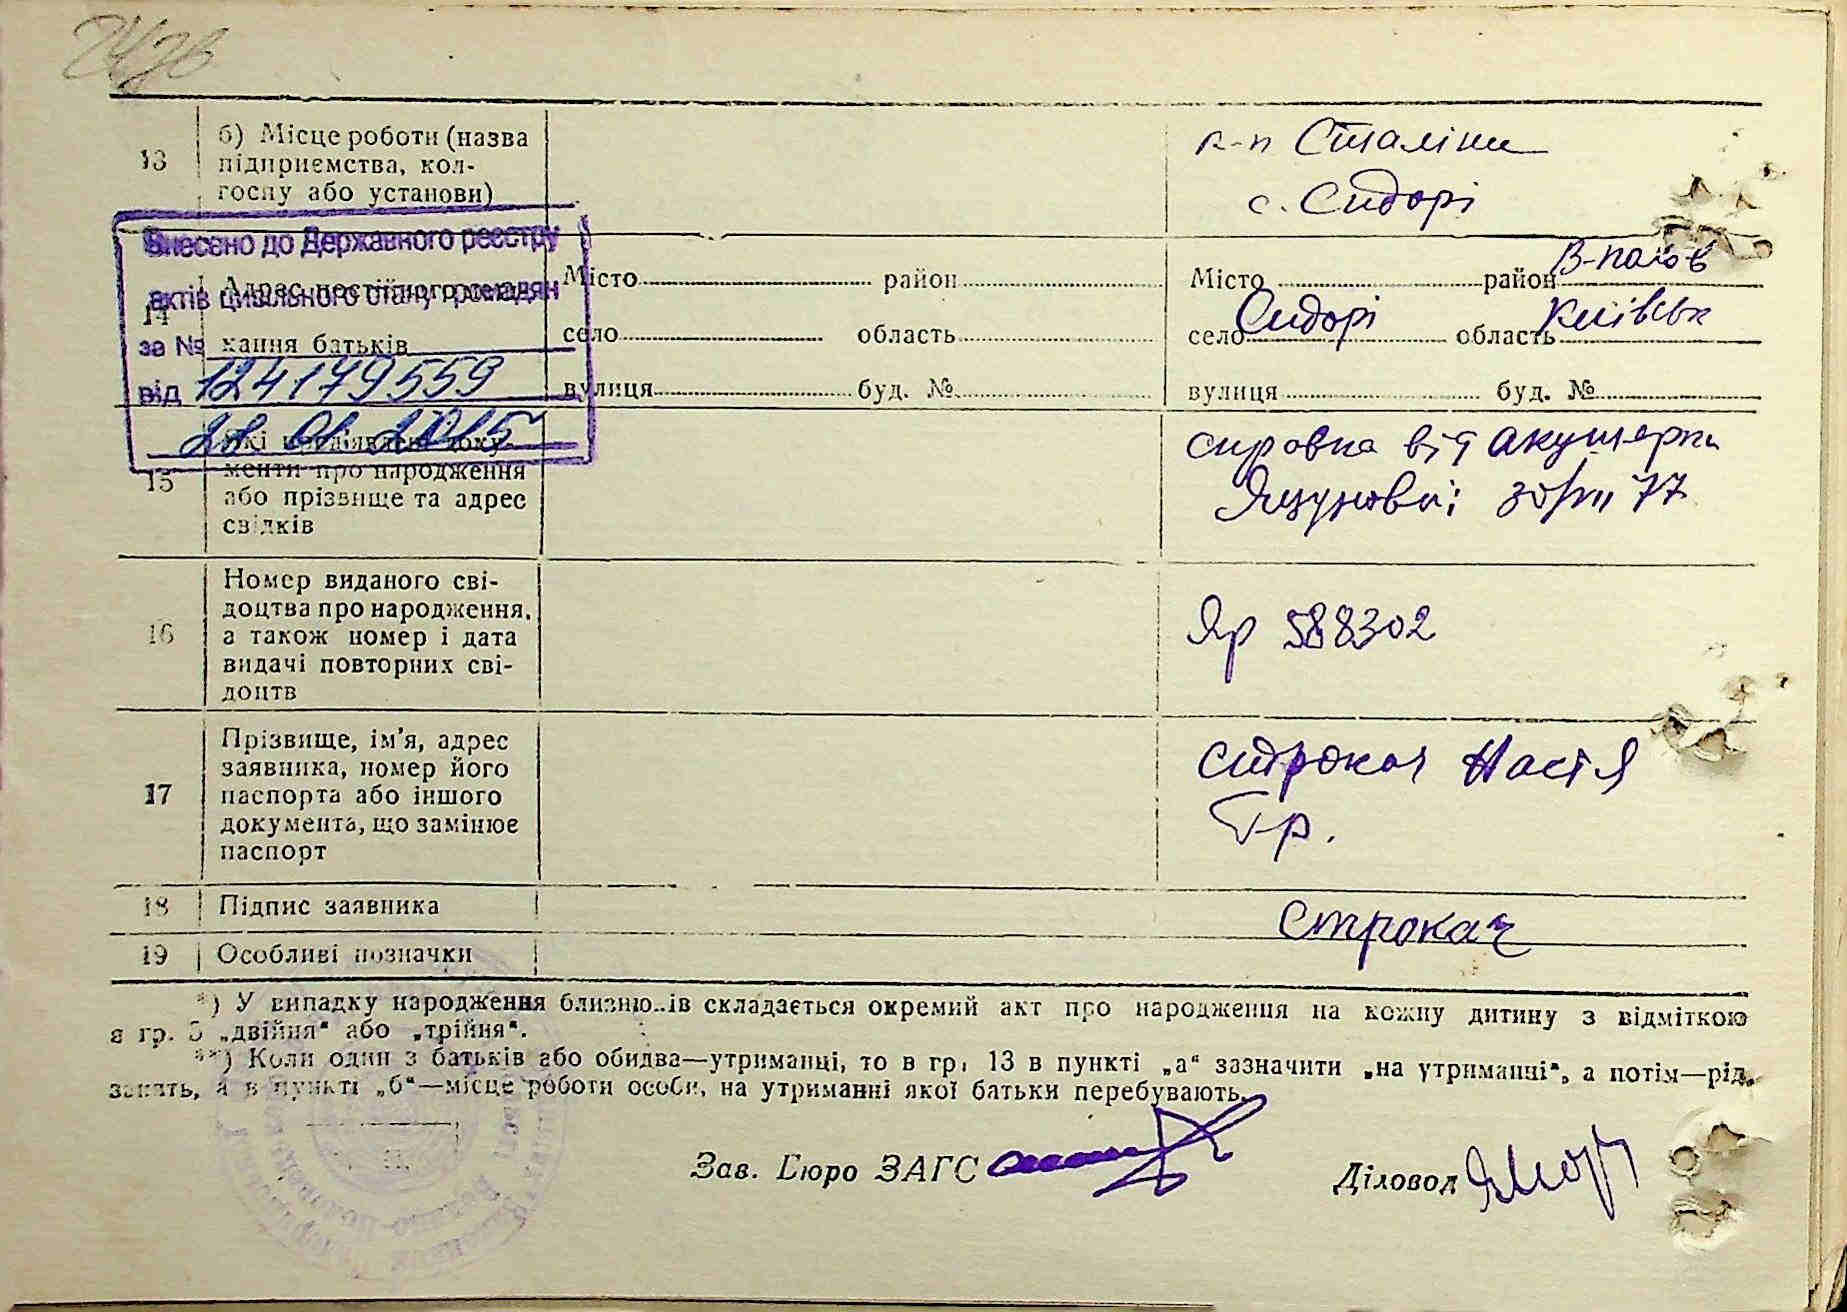 13
б) Місце роботи (назва
підприємства, кол-
госпу або установи)
к-п Сталіна
с. Сидорі
Внесено до Державного реєстру
актів цивільного стану громадян
за №
124179559
від
28 01 2015
14
хання батьків
Місто район
село область
вулиця буд. №
Місто район В-полов
село Сидорі область Київськ
вулиця буд. №
15
Які пред'явлені доку-
менти про народження
або прізвище та адрес
свідків
справка від акушерки
16
Номер виданого сві-
доцтва про народження,
а також номер і дата
видачі повторних сві-
доцтв
Яр 588302
17
Прізвище, ім'я, адрес
заявника, номер його
паспорта або іншого
документа, що замінює
паспорт
Строкач Настя
Гр.
18 Підпис заявника Строкач
19 Особливі позначки
*) У випадку народження близнюків складається окремий акт про народження на кожну дитину з відміткою
в гр. 3 „двійня“ або „трійня“.
**) Коли один з батьків або обидва—утриманці, то в гр. 13 в пункті „а“ зазначити „на утриманні“, а потім—рід
занять, а в пункті „б“—місце роботи особи, на утриманні якої батьки перебувають.
Зав. Бюро ЗАГС
Діловод